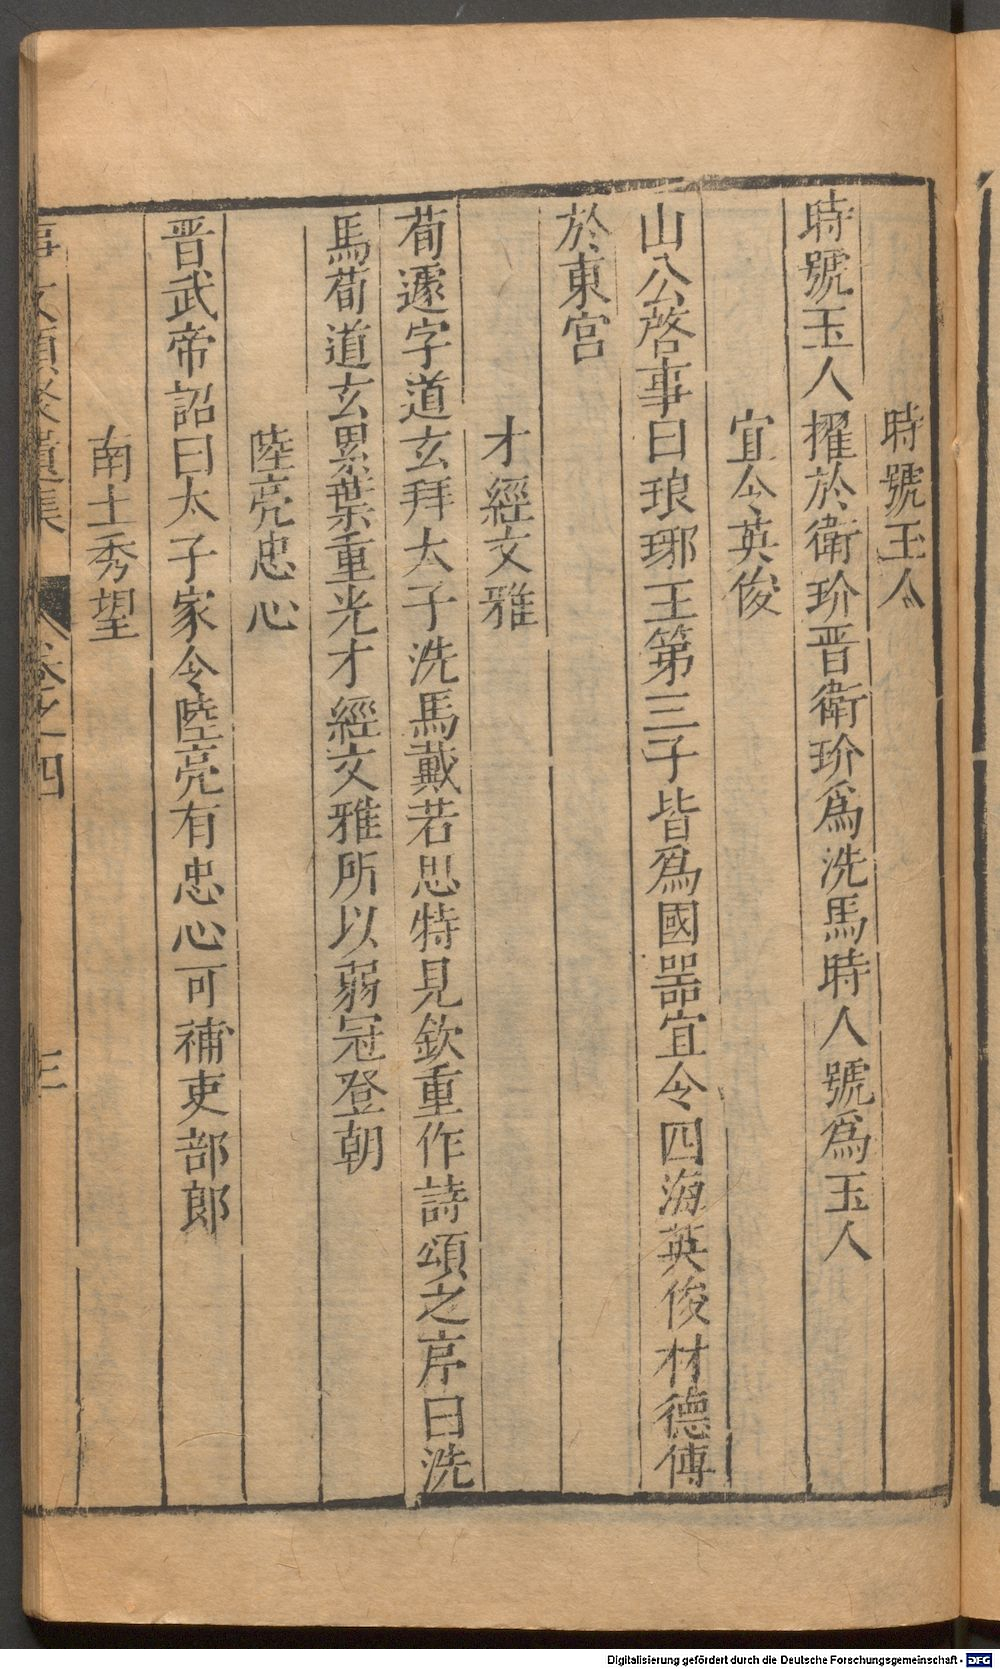 時號玉人
時號玉人擢於衛玠晋衛玠爲洗馬時人號爲玉人
宜令英俊
山公啓事曰琅琊王第三子皆爲國器宜令四海英俊材德傅
於東宮
才經文雅
荀邃字道玄拜太子洗馬戴若思特見欽重作詩頌之序曰洗
馬荀道玄累葉重光才經文雅所以弱冠登朝
陸亮忠心
晋武帝詔曰太子家令陸亮有忠心可補吏部郎
南士秀望
事文類聚遺集 卷之四 三
Digitalisierung gefördert durch die Deutsche Forschungsgemeinschaft - DFG